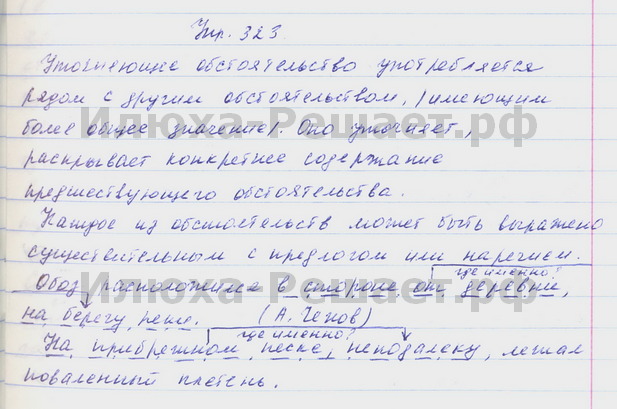 Упр. 323
Уточняющее обстоятельство употребляется
рядом с другим обстоятельством, (имеющим
более общее значение). Оно уточняет,
раскрывает конкретнее содержание
предшествующего обстоятельства.
Каждое из обстоятельств может быть выражено
существительным с предлогом или наречием.
где именно?
Обоз расположился в стороне от деревни,
на берегу реки. (А. Чехов)
где именно?
На прибрежном песке, неподалеку, лежал
поваленный плетень.
Илюха-Решает.рф
Илюха-Решает.рф